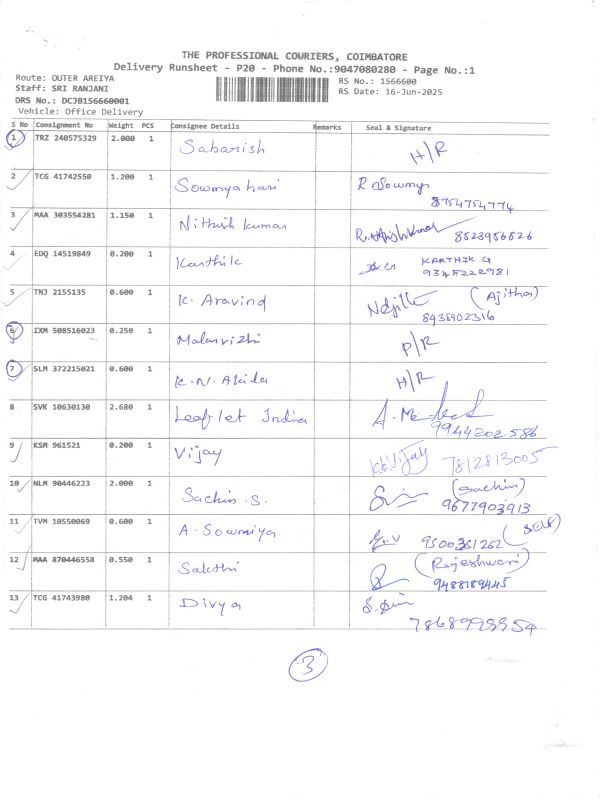 THE PROFESSIONAL COURIERS, COIMBATORE
Delivery Runsheet - P20 - Phone No.:9047080280 - Page No.:1
Route: OUTER AREIYA
RS No.: 1566600
Staff: SRI RANJANI
RS Date: 16-Jun-2025
DRS No.: DCJB156660001
Vehicle: Office Delivery
S No Consignment No Weight PCS Consignee Details Remarks Seal & Signature
1 TRZ 240575329 2.000 1 Sabarish H/R
2 TCG 41742550 1.200 1 Sowmyahari R Sowmya
8754754774
3 MAA 303554281 1.150 1 Nithish kumar 8523956826
4 EDQ 14519849 0.200 1 Karthik KARTHIK G
9345222981
5 TNJ 2155135 0.600 1 K. Aravind (Ajitha)
8438902316
6 IXM 508516023 0.250 1 Malarvizhi P/R
7 SLM 372215021 0.600 1 K.N. Akila H/R
8 SVK 10630130 2.680 1 Leaflet India
9944202586
9 KSM 961521 0.200 1 Vijay Vijay 7812813005
10 NLM 90446223 2.000 1 Sachin.S. (Sachin)
9677903913
11 TVM 10550069 0.600 1 A. Sowmiya 9500351262 (SELF)
12 MAA 870446558 0.550 1 Sakthi (Rajeshwari)
9488189445
13 TCG 41743980 1.204 1 Divya
7868993954
3